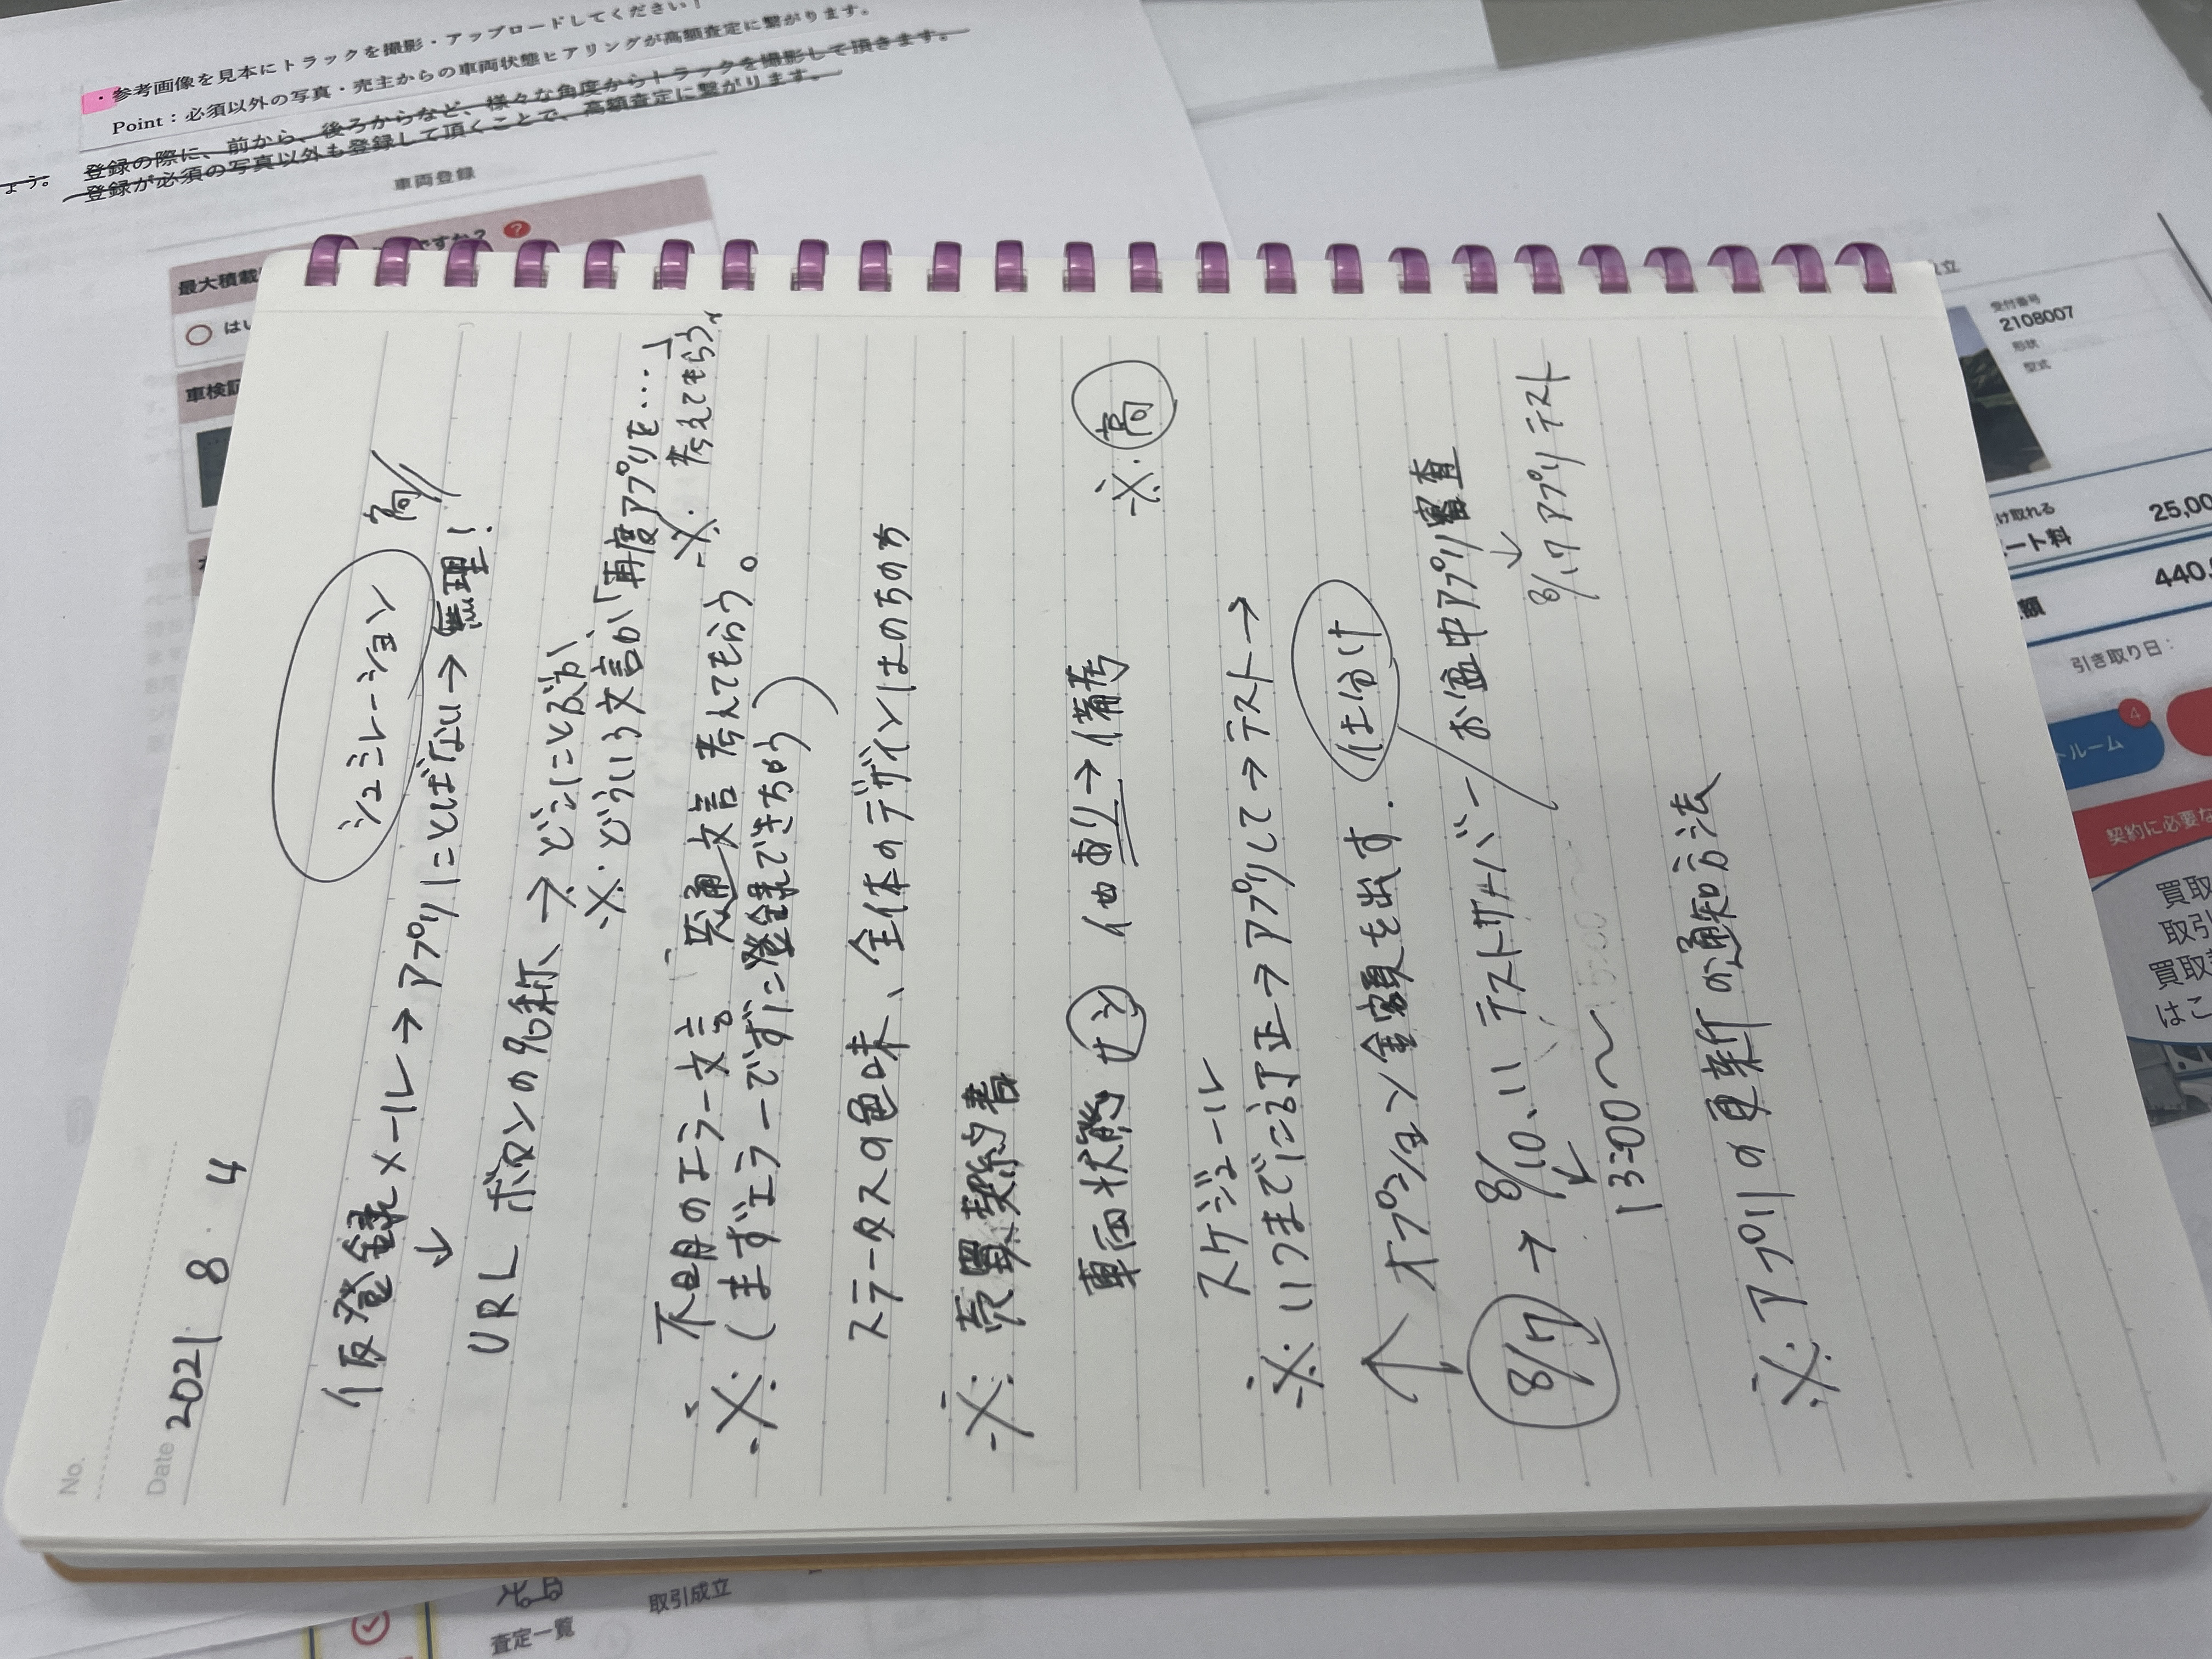 ・参考画像を見本にトラックを撮影・アップロードしてください！
Point：必須以外の写真・売主からの車両状態ヒアリングが高額査定に繋がります。
登録の際に、前から、後ろからなど、様々な角度からトラックを撮影して頂きます。
ょう。 登録が必須の写真以外も登録して頂くことで、高額査定に繋がります。
車両登録
ですか？ ?
最大積載
はい
車検証
No.
Date 2021 8 4
シュミレーション 高
仮登録メール→アプリにとばない→無理！
↓
URL ボタンの名称 → どこにとぶか
※どういう文言か「再度アプリを…」
※考えてもらう
不明のエラー文言 共通文言 考えてもらう。
※(まずエラーでずに登録できちゃう)
ステータスの色味、全体のデザインはのちのち
※売買契約書
車両状態 他あり→備考 ※高
スケジュール
※いつまでに訂正→アプリして→テスト→
↑ オプション金額を出す. 仕分け
8/7 → 8/10、11 テストサーバー お盆中アプリ審査
↓
8/17 アプリテスト
13:00〜
15:00
※アプリの更新の通知方法
成立
受付番号
2108007
形状
型式
け取れる
ート料 25,00
額 440,
引き取り日：
トルーム 4
契約に必要な
買取
取引
買取
はこ
査定一覧
取引成立